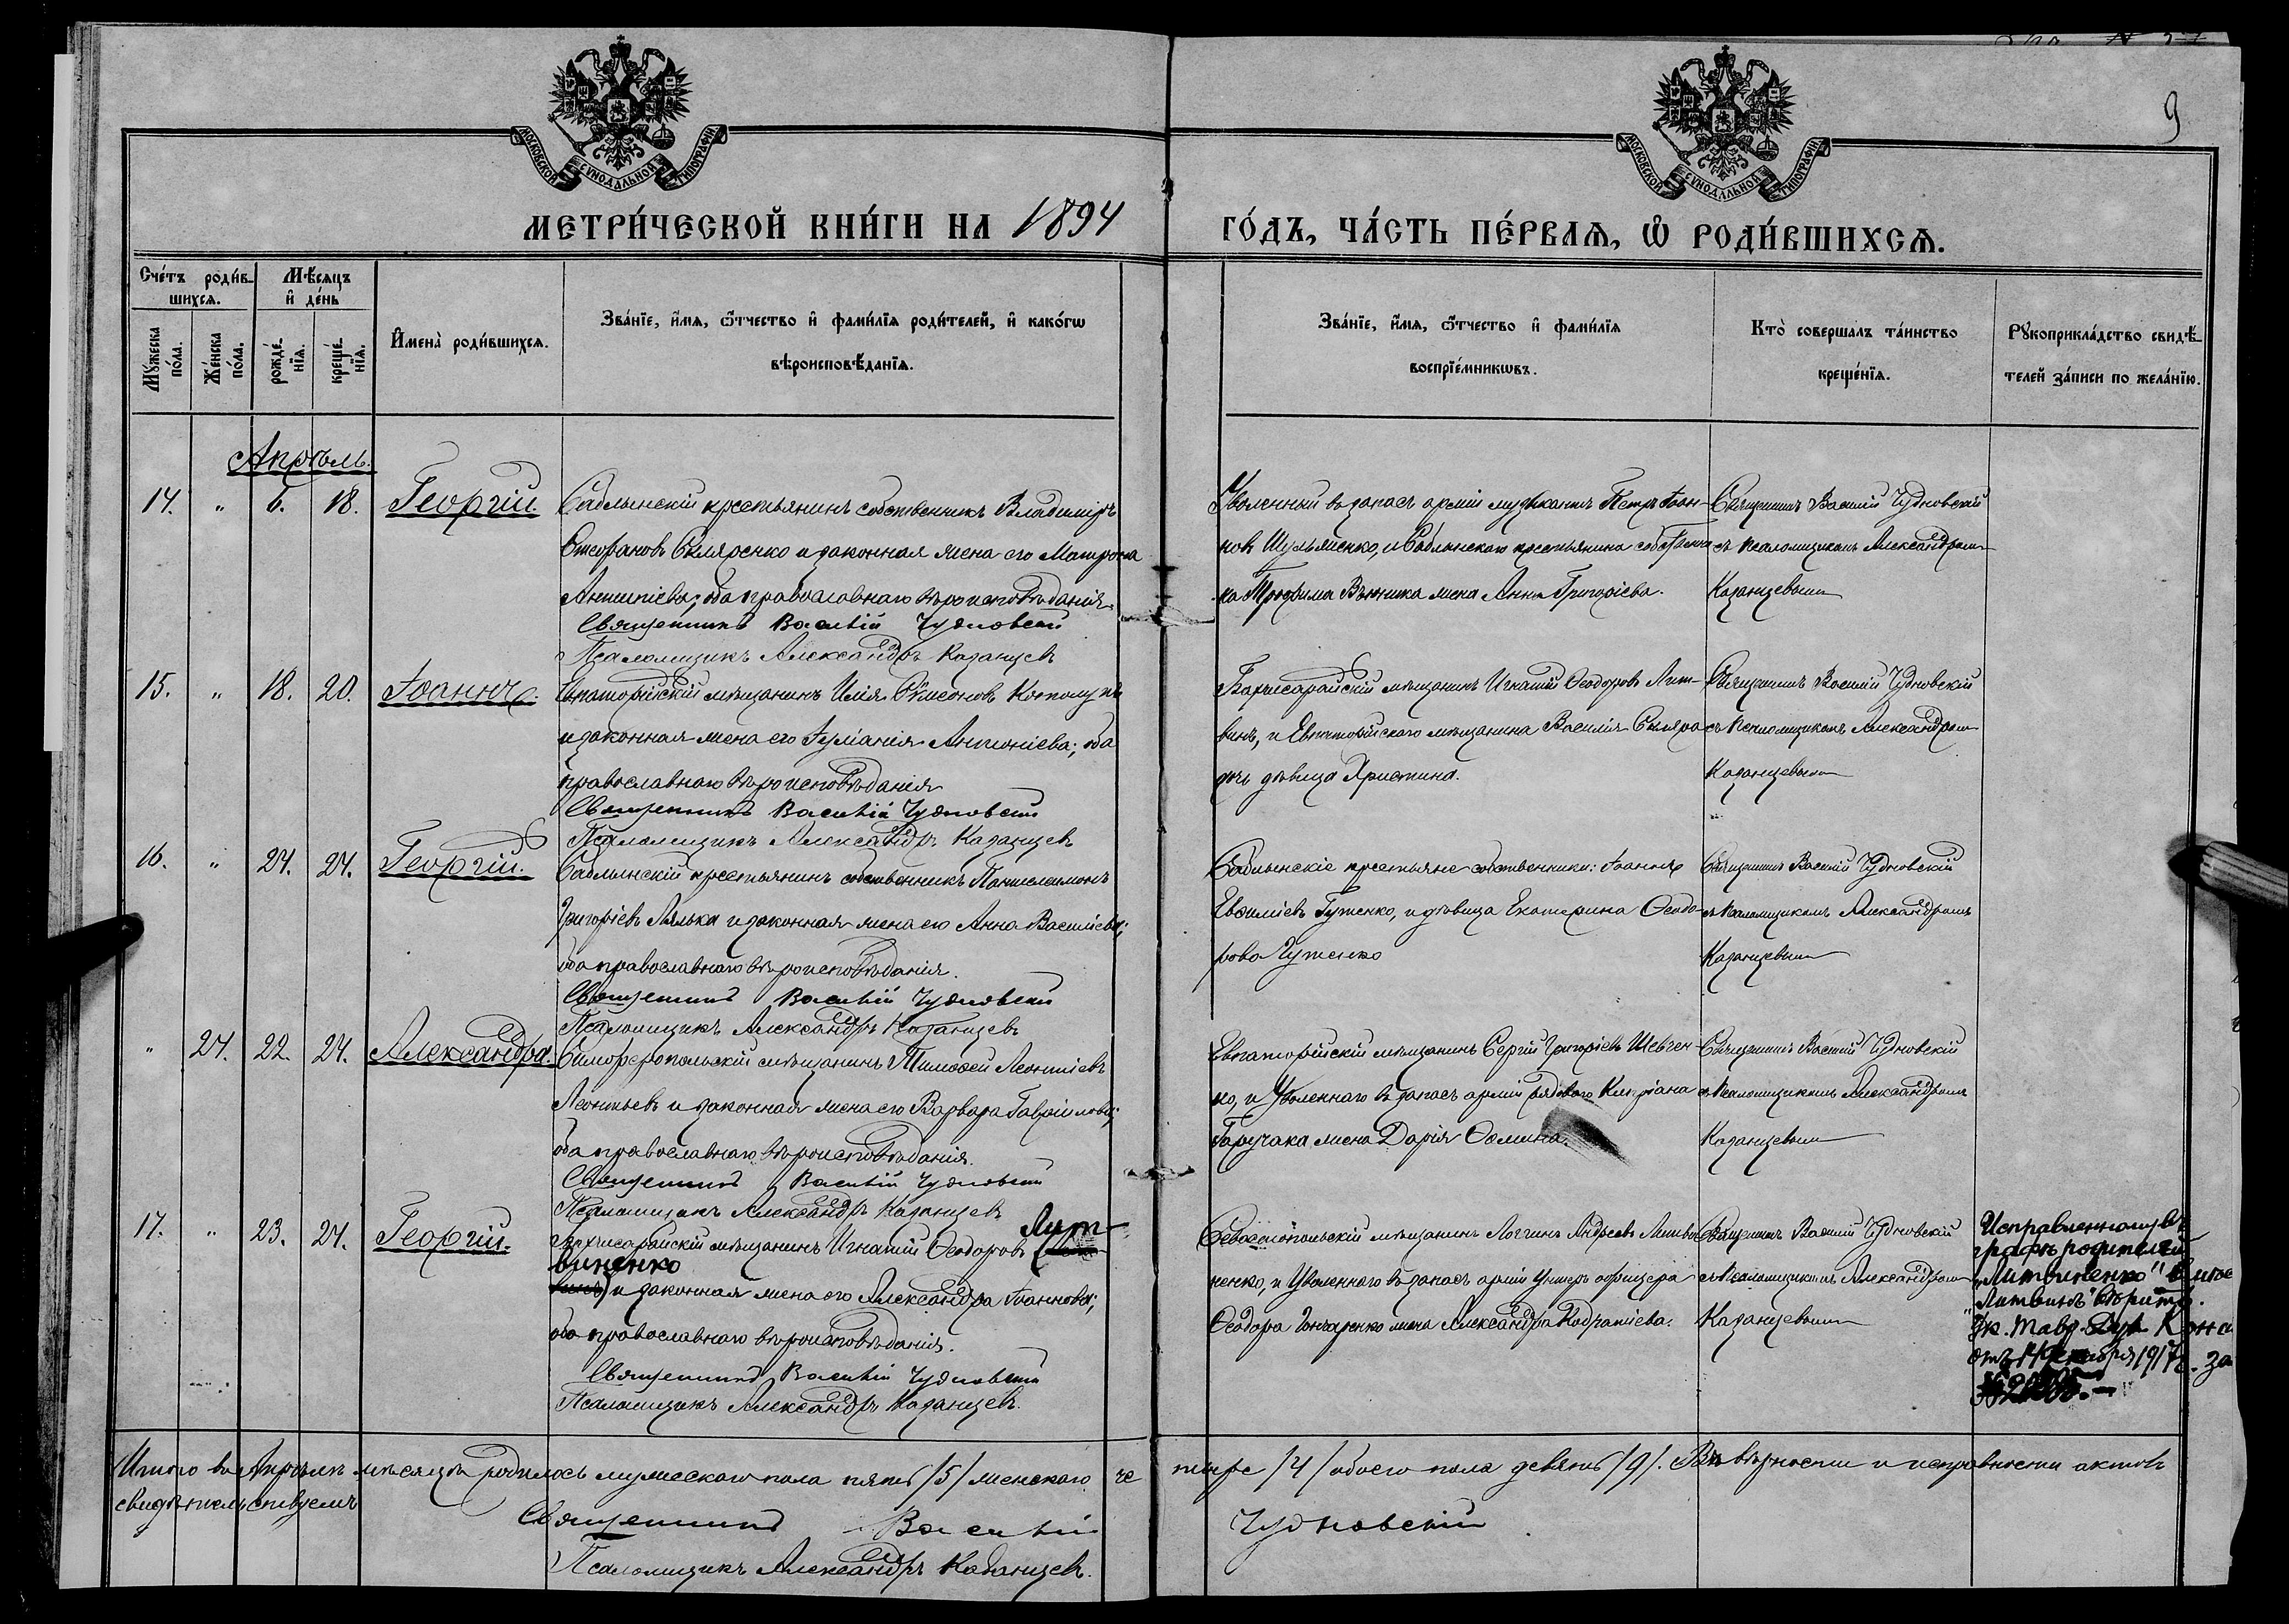 9
МОСКОВСКОЙ СѴНОДАЛЬНОЙ ТИПОГРАФІИ
МОСКОВСКОЙ СѴНОДАЛЬНОЙ ТИПОГРАФІИ
МЕТРИ́ЧЕСКОЙ КНИ́ГИ НА 1894
ГО́ДЪ, ЧА́СТЬ ПЕ́РВАѦ, Ѽ РОДИ́ВШИХСѦ.
Сче́тъ роди́вшихсѧ.
Мѣ́сѧцъ и҆ де́нь
Мꙋ́жеска по́ла.
Же́нска по́ла.
рожде́нїѧ.
креще́нїѧ.
И҆мена̀ роди́вшихсѧ.
Зва́нїе, и҆́мѧ, ѻ҆́тчество и҆ фами́лїѧ роди́телей, и҆ како́гѡ
вѣроисповѣ́данїѧ.
Зва́нїе, и҆́мѧ, ѻ҆́тчество и҆ фами́лїѧ
воспрїе́мникѡвъ.
Кто̀ соверша́лъ та́инство
креще́нїѧ.
Рꙋкоприкла́дство свидѣ́-
телей за́писи по жела́нїю.
Апрѣль.
14. " 6. 18. Георгій.
Саблынскій крестьянинъ собственникъ Владиміръ
Стефановъ Скляренко и законная жена его Матрона
Антипіева; оба православнаго вѣроисповѣданія.
Священникъ Василій Чудновскій
Псаломщикъ Александръ Казанцевъ
Уволенный въ запасъ арміи музыкантъ Петръ Іоан-
новъ Шульженко, и Саблынскаго крестьянина собственни-
ка Трофима Вьюника жена Анна Григоріева.
Священникъ Василій Чудновскій
съ псаломщикомъ Александромъ
Казанцевымъ
15. " 18. 20. Іоаннъ.
Евпаторійскій мѣщанинъ Илія Сѵмеоновъ
и законная жена его Іуліанія Антоніева; оба
православнаго вѣроисповѣданія
Священникъ Василій Чудновскій
Псаломщикъ Александръ Казанцевъ
Бахчисарайскій мѣщанинъ Игнатій Ѳеодоровъ Лит-
винъ, и Евпаторійскаго мѣщанина Василія Скляра
дочь дѣвица Христина.
Священникъ Василій Чудновскій
съ псаломщикомъ Александромъ
Казанцевымъ
16. " 24. 24. Георгій.
Саблынскій крестьянинъ собственникъ Пантелеимонъ
Григоріевъ Лялька и законная жена его Анна Василіева;
оба православнаго вѣроисповѣданія.
Священникъ Василій Чудновскій
Псаломщикъ Александръ Казанцевъ
Саблынскіе крестьяне собственники: Іоаннъ
Евѳиміевъ Гуженко, и дѣвица Екатерина Ѳеодо-
рова Гуженко
Священникъ Василій Чудновскій
съ псаломщикомъ Александромъ
Казанцевымъ
" 24. 22. 24. Александра.
Симферопольскій мѣщанинъ Тимоѳей Леонтіевъ
Леонтьевъ и законная жена его Варвара Гавріилова;
оба православнаго вѣроисповѣданія.
Священникъ Василій Чудновскій
Псаломщикъ Александръ Казанцевъ
Евпаторійскій мѣщанинъ Сергій Григоріевъ Шевчен-
ко, и Уволеннаго въ запасъ арміи рядового Кипріана
Горчака жена Дарія Ѳомина.
Священникъ Василій Чудновскій
съ псаломщикомъ Александромъ
Казанцевымъ
17. " 23. 24. Георгій.
Бахчисарайскій мѣщанинъ Игнатій Ѳеодоровъ Лит-
виненко
и законная жена его Александра Іоаннова;
оба православнаго вѣроисповѣданія.
Священникъ Василій Чудновскій
Псаломщикъ Александръ Казанцевъ.
Севастопольскій мѣщанинъ Логгинъ Андреевъ Литви-
ненко, и Уволеннаго въ запасъ арміи унтеръ офицера
Ѳеодора Гончаренко жена Александра Кодратіева.
Священникъ Василій Чудновскій
съ псаломщикомъ Александромъ
Казанцевымъ
Исправленному въ
графѣ родителей
"Литвиненко" вмѣс
"Литвинъ" вѣрить.
Ук. Тавр. Дух. Конс
отъ декабря 1917 г. за
Итого въ Апрѣлѣ мѣсяцѣ родилось мужескаго пола пять /5/ женскаго че
тыре /4/ обоего пола девять /9/. Въ вѣрности и исправности актовъ
свидѣтельствуемъ
Священникъ Василій Чудновскій
Псаломщикъ Александръ Казанцевъ.